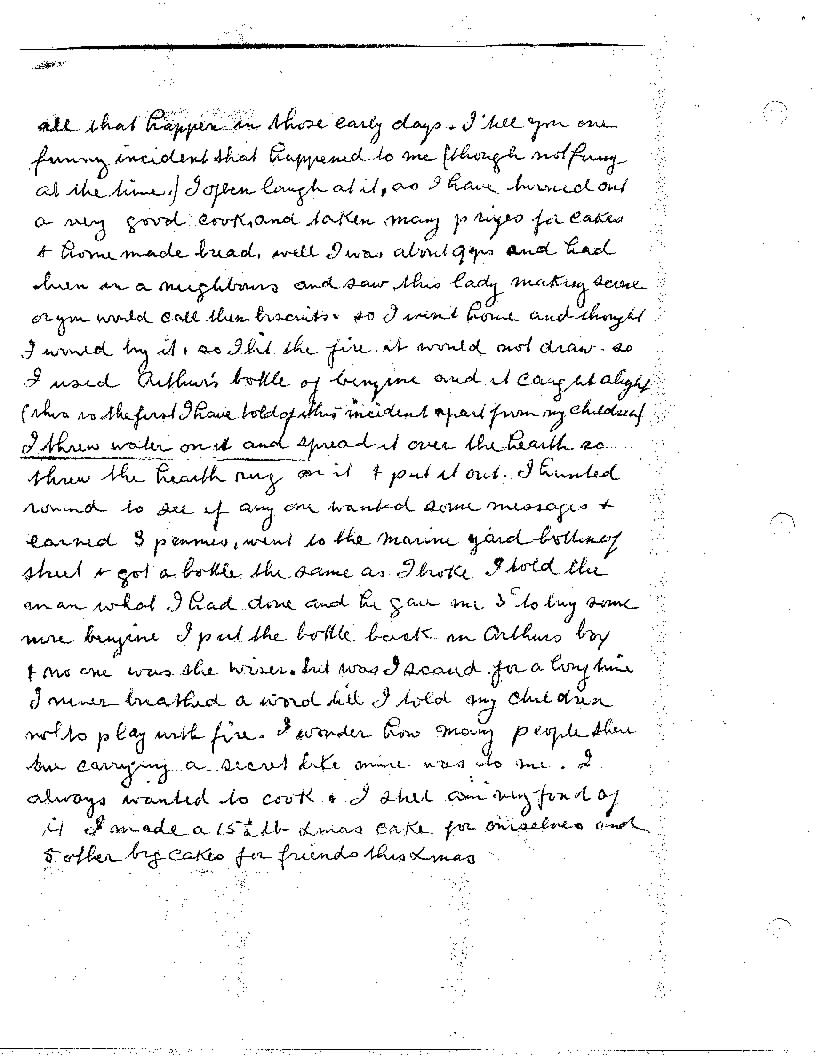 all that happen in those early days. I'tell you one
funny incident that happened to me (though not funny
at the time.) I often laugh at it, as I have turned out
a very good cook, and taken many prizes for cakes
& home made bread. well I was about 9 yrs and had
been in a neighbours and saw this lady making scone
or you would call then biscuits. so I went home and thought
I would try it, so I lit the fire. it would not draw. so
I used Arthur's bottle of benzine and it caught alight
(this is the first I have told of this incident apart from my children)
I threw water on it and spread it over the hearth so
threw the hearth rug on it & put it out. I hunted
round to see if any one wanted some messages &
earned 3 pennies, went to the marine yard bottom of
street & got a bottle the same as I broke I told the
man what I had done and he gave me 3 to buy some
more benzine I put the bottle back in Arthurs box
& no one was the wiser. but was I scared for a long time
I never breathed a word till I told my children
not to play with fire. I wonder how many people there
are carrying a secret like mine was to me. I
always wanted to cook & I still am very fond of
it I made a 15 lb Xmas cake for ourselves and
5 other big cakes for friends this Xmas